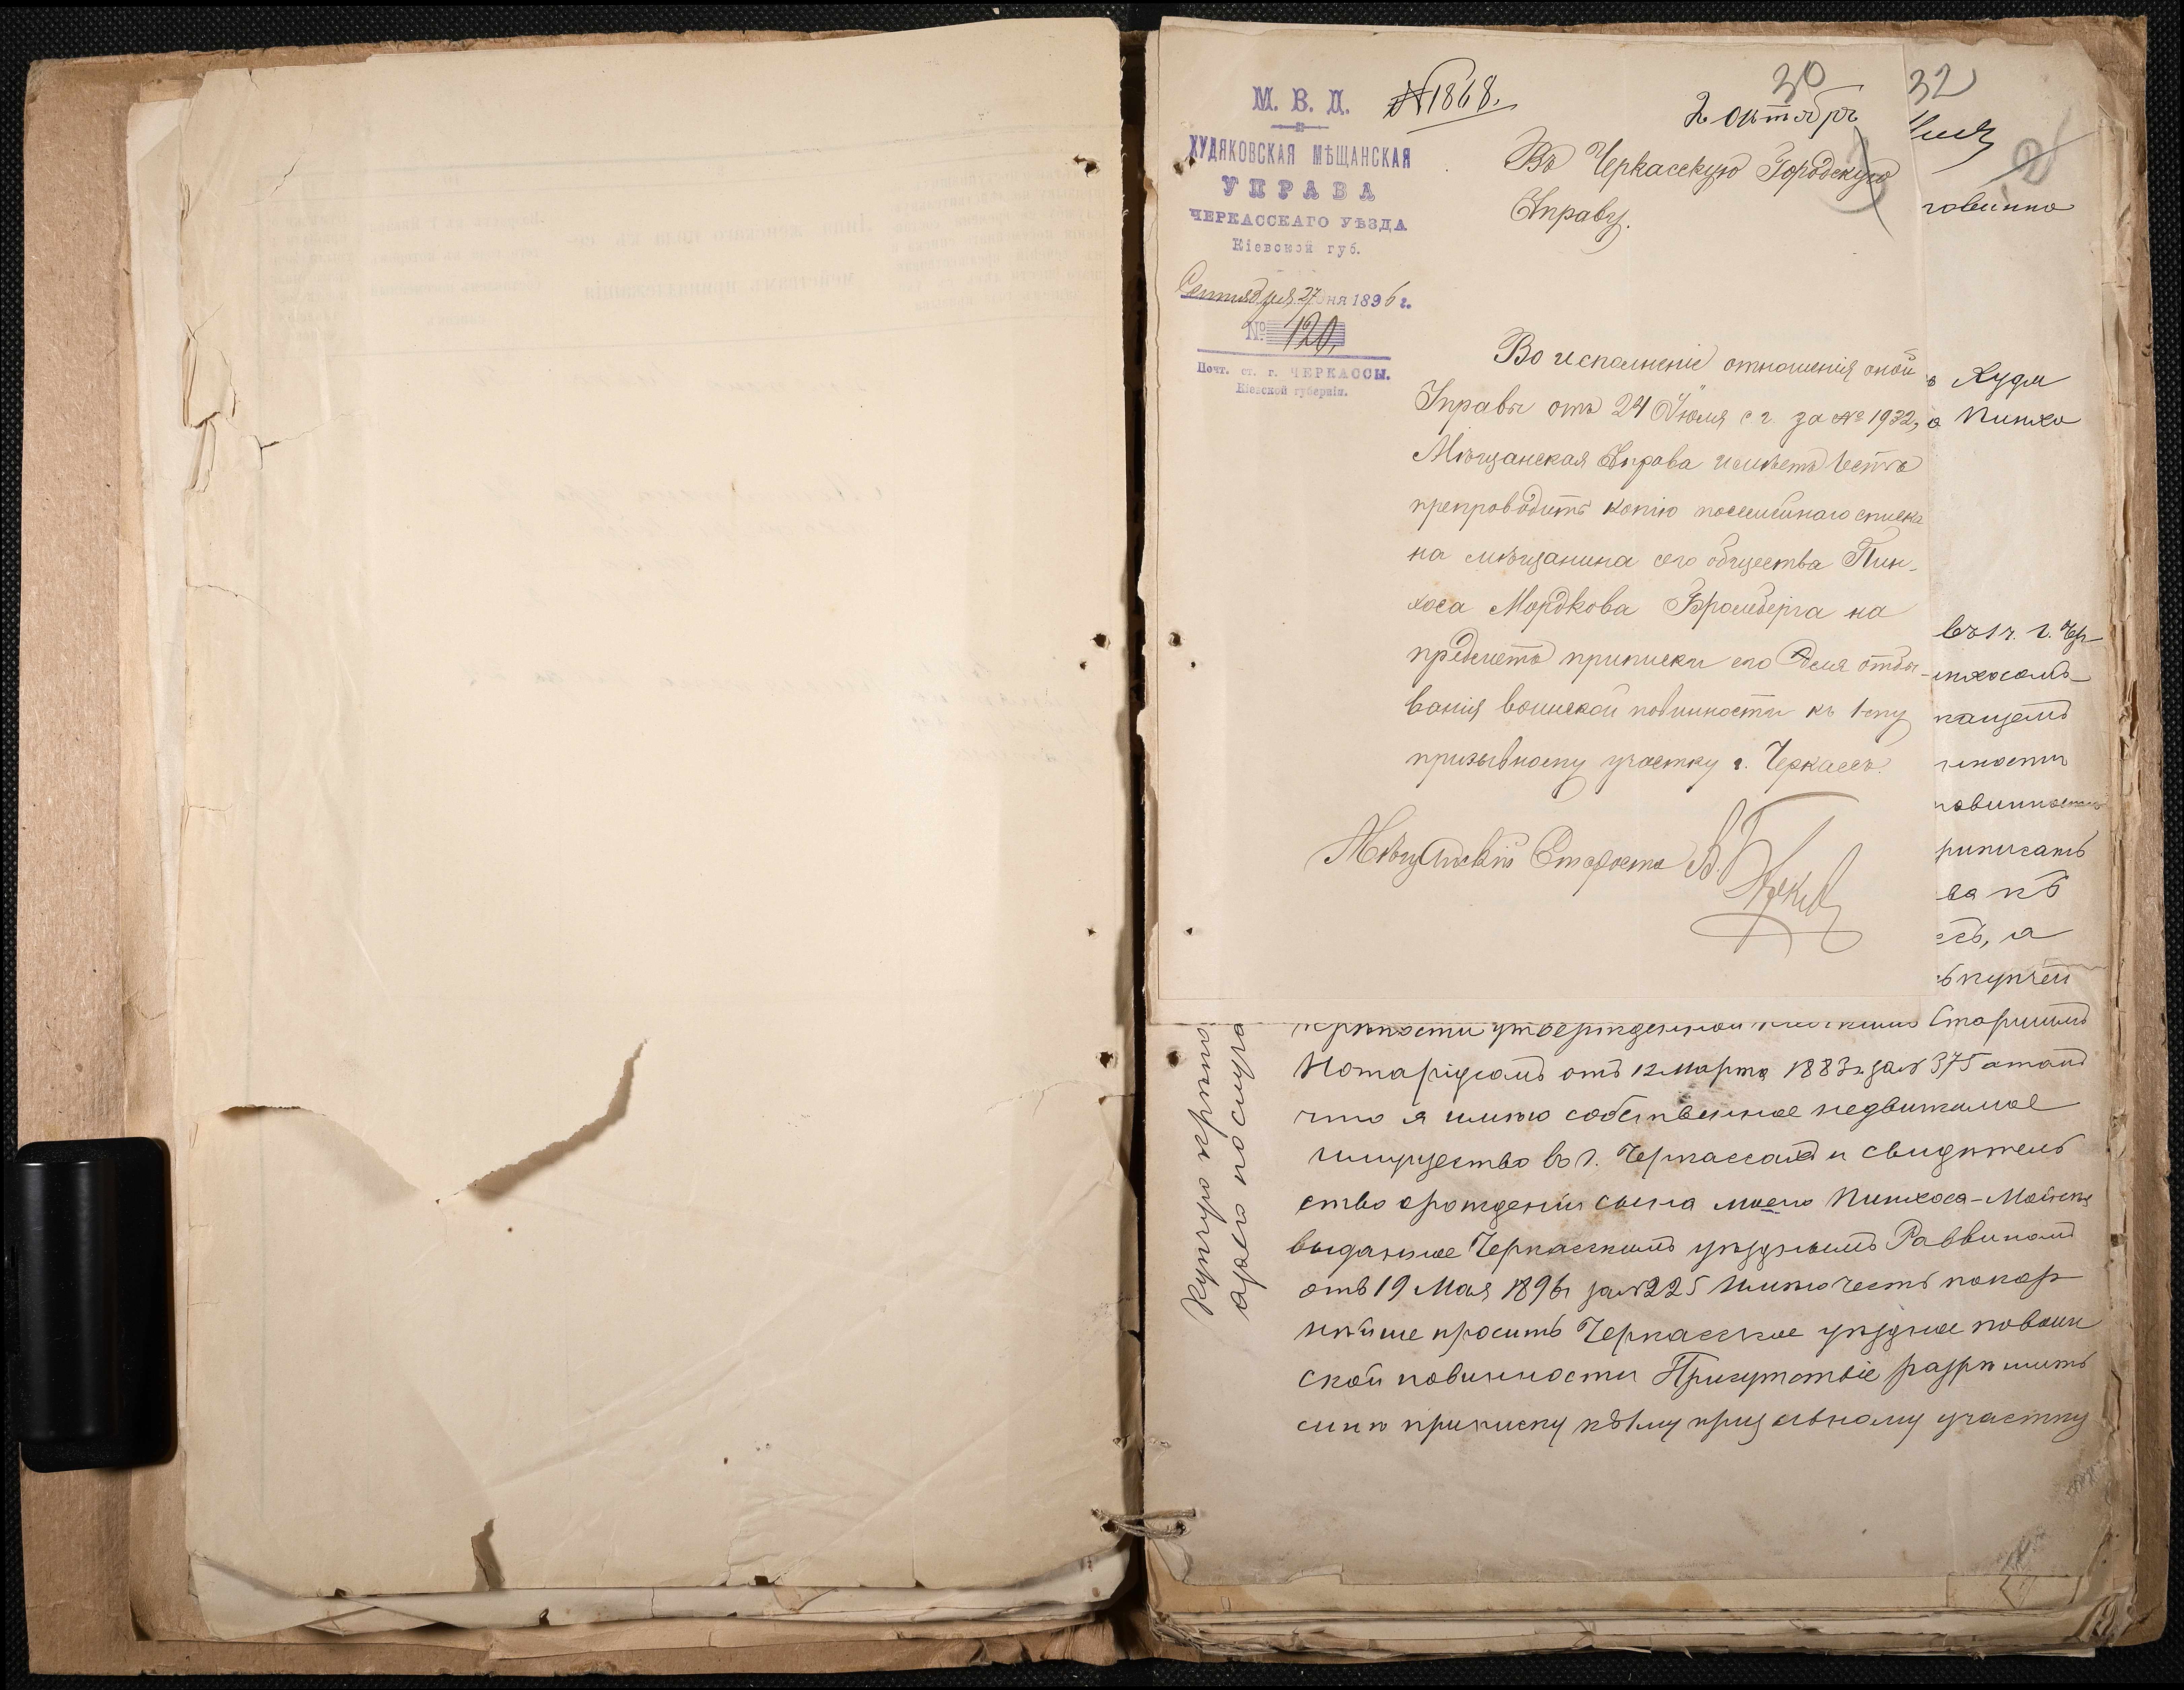 30
32
М. В. Д.
№ 1868.
2 октября
ХУДЯКОВСКАЯ МѢЩАНСКАЯ
УПРАВА
ЧЕРКАССКАГО УѢЗДА
Кіевской губ.
Сентября 27 ня 1896 г.
№ 120,
Почт. ст. г. ЧЕРКАССЫ.
Кіевской губерніи.
Въ Черкасскую Городскую
Управу.
Во исполненіе отношенія оной
Управы отъ 24 Іюля с г. за № 1932,
Мѣщанская Управа имѣетъ честь
препроводить копію посемейнаго списка
на мѣщанина сего общества Пин-
хоса Мордкова Бромберга на
предметъ приписки его для отбы-
ванія воинской повинности къ 1-му
призывному участку г. Черкассъ.
Мѣщанскій Староста
повинно
Худя
Пинхо
въ 1 ч. г. Чер
инхосомъ
жащемъ
жности
повинности
риписать
ва къ
съ, а
купчей
крѣпости утвержденной Старшимъ
Нотаріусомъ отъ 12 Марта 1883 г. за № 375 о томъ
что я имѣю собственное недвижимое
имущество въ г. Черкассахъ и свидѣтель
ство о рожденіи сына моего Пинхоса-Мойсея
выданное Черкасскимъ уѣзднымъ Раввиномъ
отъ 19 Мая 1896 г за № 225 Имѣю честь покор
нѣйше просить Черкасское уѣздное по воин
ской повинности Присутствіе разрѣшить
мнѣ приписку къ 1му призывному участку
Купчую крѣпость